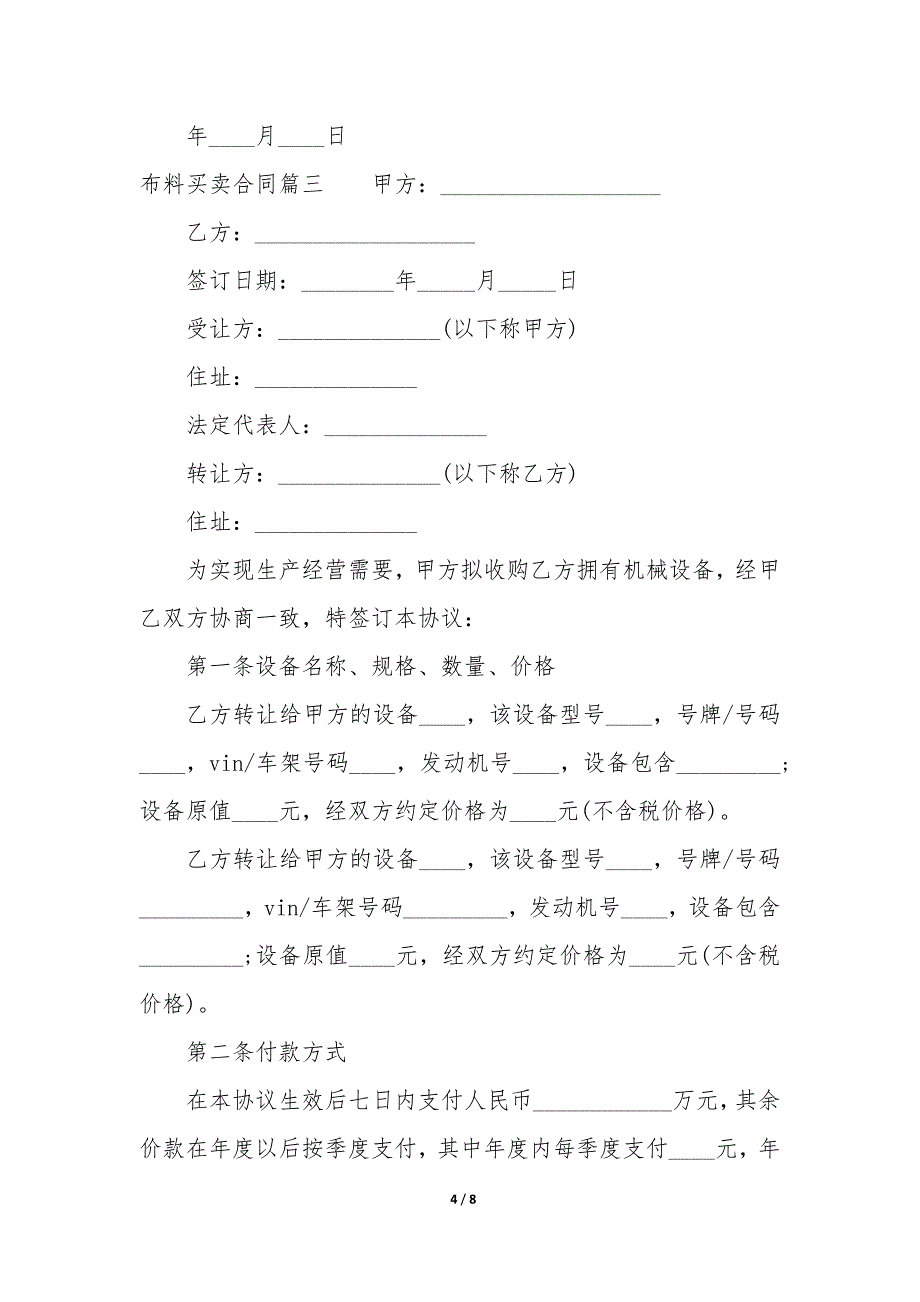 年____月____日
布料买卖合同篇三　　甲方：___________________
乙方：___________________
签订日期：________年_____月_____日
受让方：______________(以下称甲方)
住址：______________
法定代表人：______________
转让方：______________(以下称乙方)
住址：______________
为实现生产经营需要，甲方拟收购乙方拥有机械设备，经甲
乙双方协商一致，特签订本协议：
第一条设备名称、规格、数量、价格
乙方转让给甲方的设备____，该设备型号____，号牌/号码
____，vin/车架号码____，发动机号____，设备包含_________;
设备原值____元，经双方约定价格为____元(不含税价格)。
乙方转让给甲方的设备____，该设备型号____，号牌/号码
_________，vin/车架号码_________，发动机号____，设备包含
_________;设备原值____元，经双方约定价格为____元(不含税
价格)。
第二条付款方式
在本协议生效后七日内支付人民币____________万元，其余
价款在年度以后按季度支付，其中年度内每季度支付____元，年
4 / 8